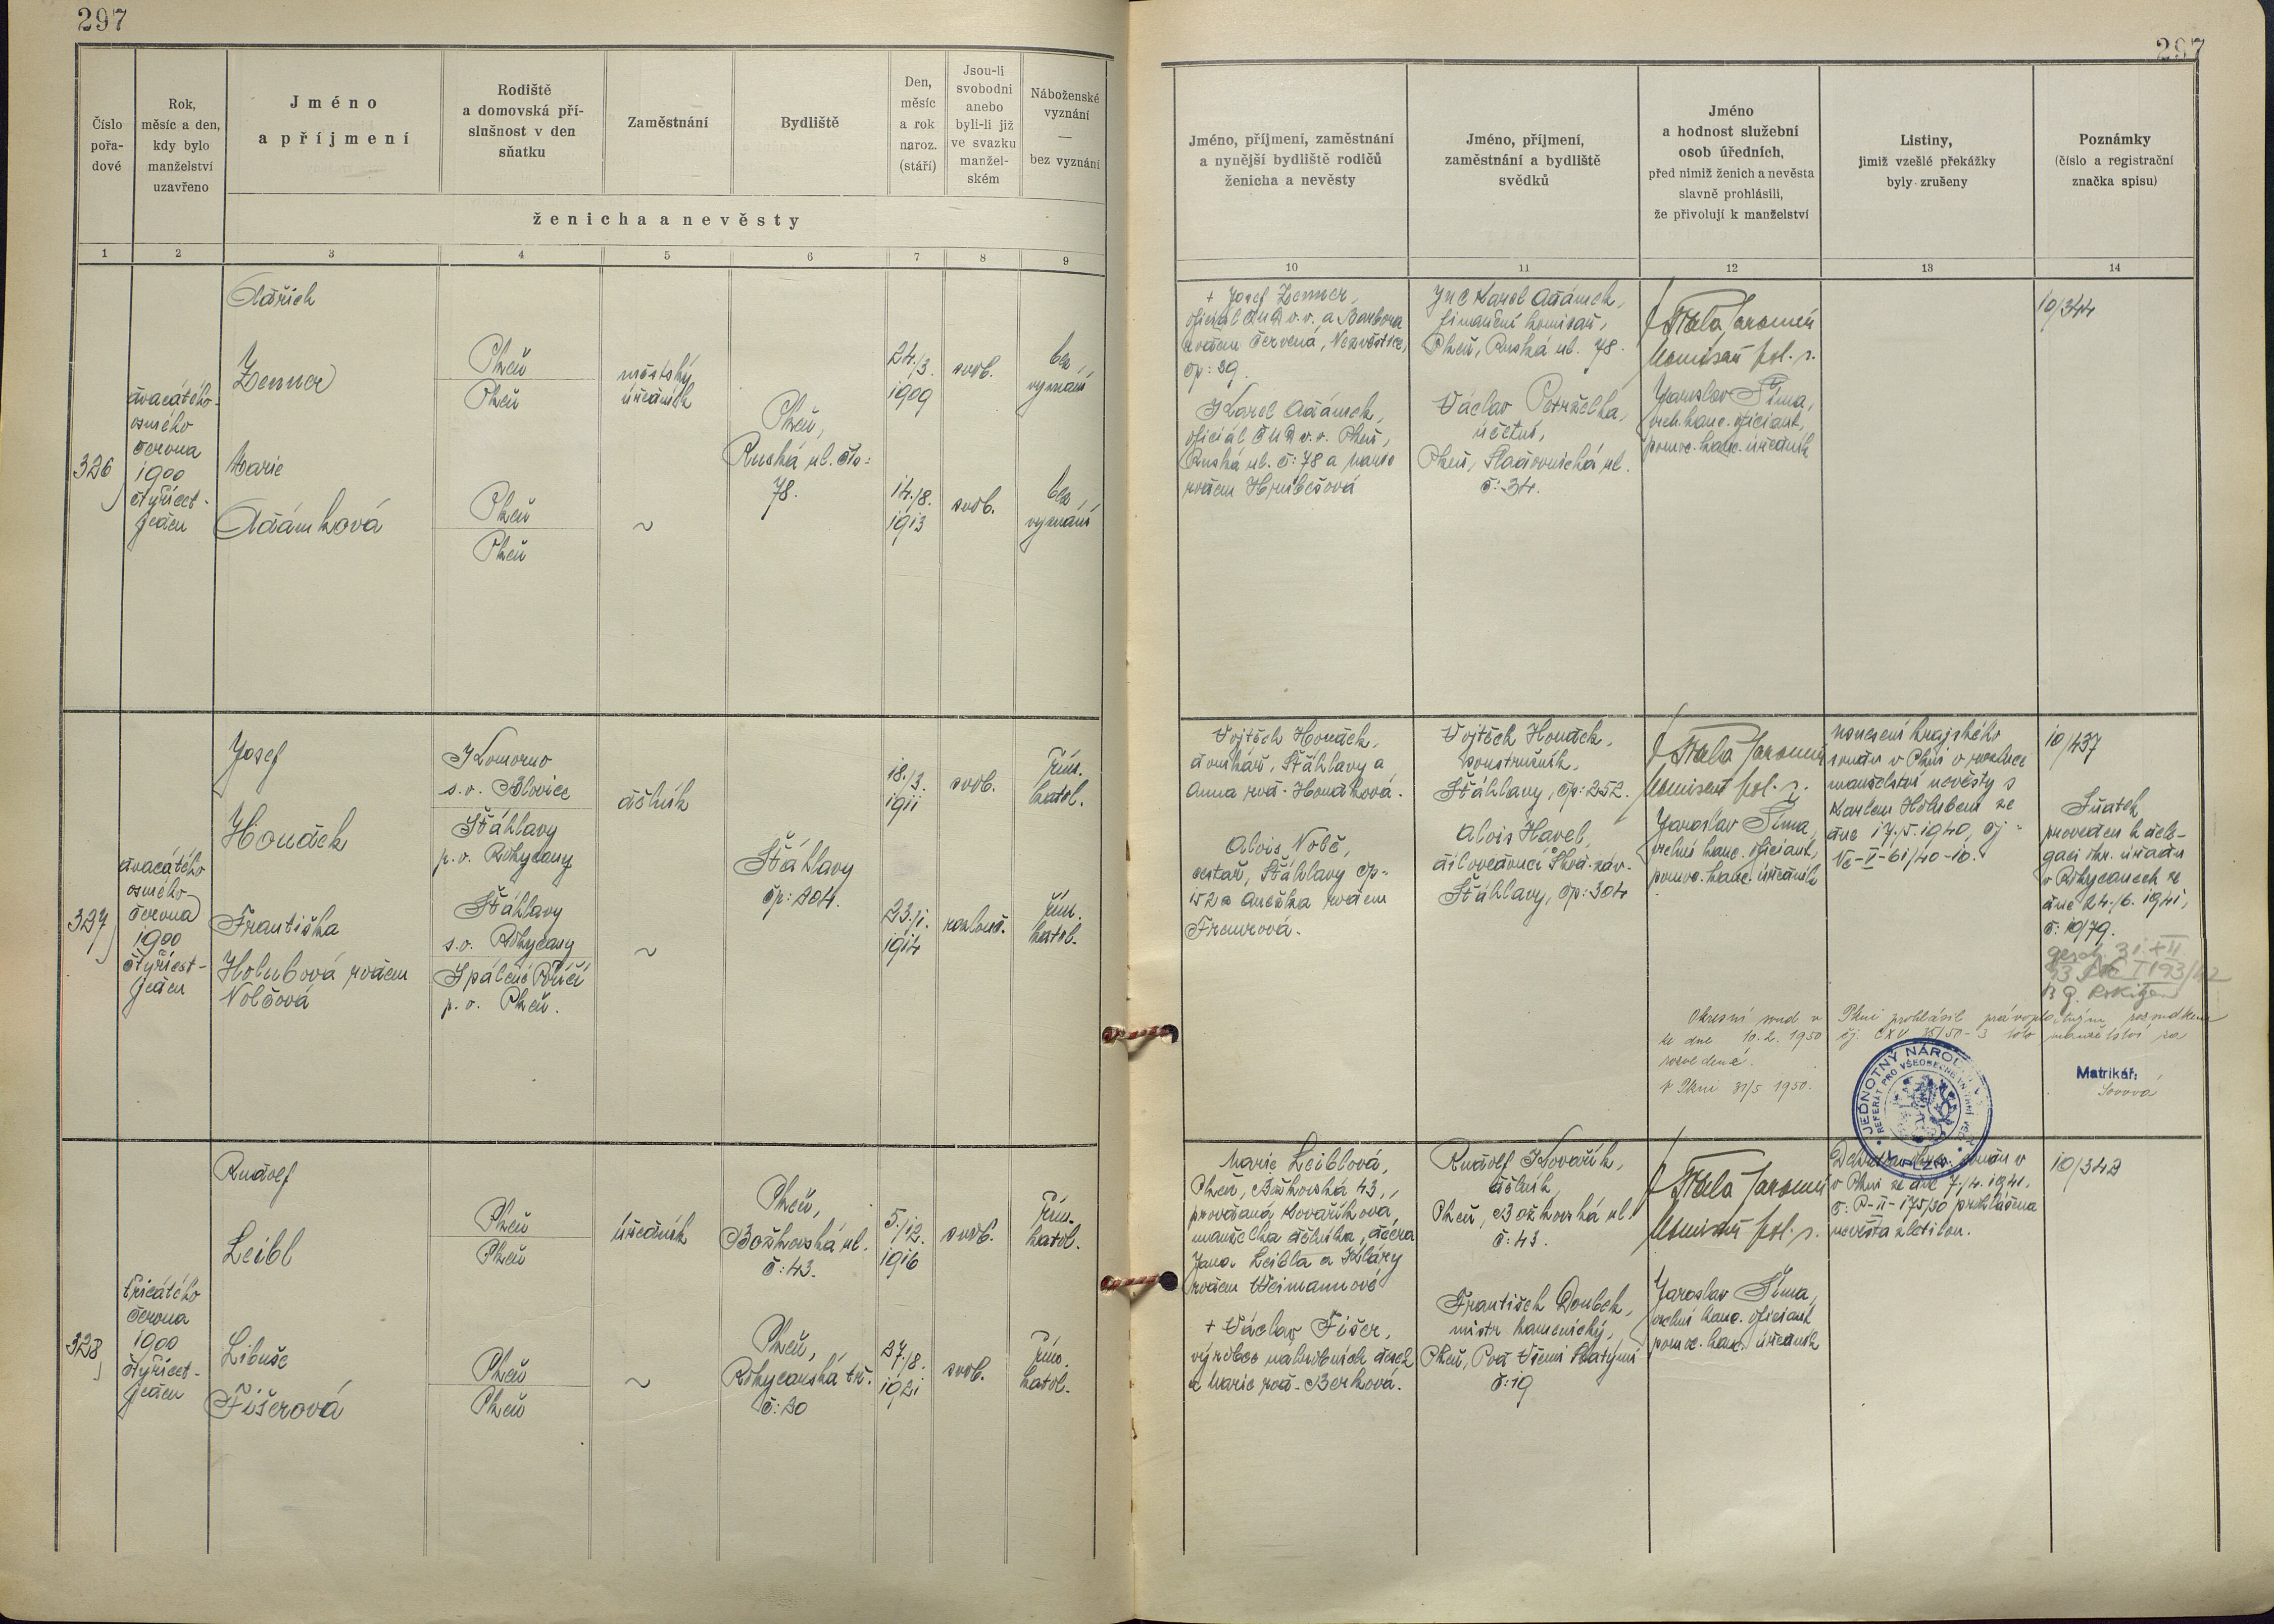 297
297
Číslo
pořa-
dové
Rok,
měsíc a den,
kdy bylo
manželství
uzavřeno
Jméno
a příjmení
Rodiště
a domovská pří-
slušnost v den
sňatku
Zaměstnání
Bydliště
Den,
měsíc
a rok
naroz.
(stáří)
Jsou-li
svobodni
anebo
byli-li již
ve svazku
manžel-
ském
Náboženské
vyznání
—
bez vyznání
ženicha a nevěsty
1 2 3 4 5 6 7 8 9
Jméno, příjmení, zaměstnání
a nynější bydliště rodičů
ženicha a nevěsty
Jméno, příjmení,
zaměstnání a bydliště
svědků
Jméno
a hodnost služební
osob úředních,
před nimiž ženich a nevěsta
slavně prohlásili,
že přivolují k manželství
Listiny,
jimiž vzešlé překážky
byly zrušeny
Poznámky
(číslo a registrační
značka spisu)
10 11 12 13 14
326
dvacátého
osmého
června
1900
čtyřicet-
jeden
Oldřich
Zenner
Marie
Adámková
Plzeň
Plzeň
Plzeň
Plzeň
městský
úředník
~
Plzeň,
Ruská ul. čís:
78.
24./3.
1909
14./8.
1913
svob.
svob.
bez
vyznání
bez
vyznání
+ Josef Zenner,
oficiál ČMD v.v. a Barbora
rozen Červená, Nezvěstice,
čp: 39.
Karel Adámek,
oficiál ČMD v.v. Plzeň,
Ruská ul. č: 78 a Marie
rozen Hrubešová
JUC Karel Adámek,
finanční komisař,
Plzeň, Ruská ul. 78.
Václav Petrželka,
účetní,
Plzeň, Sladovnická ul.
č: 34.
Fiala Jaromír
komisař pol. s.
Jaroslav Šíma,
vrch. kanc. oficiant,
pomoc. kanc. úředník
10/344
327
dvacátého
osmého
června
1900
čtyřicet-
jeden
Josef
Houdek
Františka
Holubová rozen
Nolčová
Komorno
s.o. Blovice
Šťáhlavy
p.o. Rokycany
Šťáhlavy
s.o. Rokycany
Spálené Poříčí
p.o. Plzeň.
dělník
~
Šťáhlavy
čp: 204.
18./3.
1911
23./1.
1914
svob.
rozlouč.
řím.
katol.
řím.
katol.
Vojtěch Houdek,
domkář, Šťáhlavy a
Anna roz. Houdková.
Alois Nolč,
cestář, Šťáhlavy čp-
152 a Anežka rozen
Vojtěch Houdek,
soustružník,
Šťáhlavy, čp: 252.
Alois Havel,
dílovedoucí Škod. záv.
Šťáhlavy, čp: 304
Fiala Jaromír
komisař pol. s.
Jaroslav Šíma,
vrchní kanc. oficiant,
pomoc. kanc. úředník
usnesení krajského
soudu v Plzni o rozluce
manželství nevěsty s
Karlem Holubem ze
dne 17.5.1940, čj-
Nc-II-61/40-10.
10/437
Sňatek
proveden k dele-
gaci okr. úřadu
v Rokycanech ze
dne 24./6. 1941,
č: 1979.
Okresní soud v Plzni prohlásil právoplatným rozsudkem
ze dne 10.2.1950 čj. CXV 35/50-3 toto manželství za
rozvedené.
V Plzni 31/5 1950.
Matrikář:
JEDNOTNÝ NÁRODNÍ
REFERÁT PRO VŠEOBECNÉ VNITŘNÍ VĚCI
328
třicátého
června
1900
čtyřicet-
jeden
Rudolf
Leibl
Libuše
Fišerová
Plzeň
Plzeň
Plzeň
Plzeň
úředník
~
Plzeň,
Božkovská ul.
č: 43.
Plzeň,
Rokycanská tř.
č: 20
5./12.
1916
27./8.
1921
svob.
svob.
řím.
katol.
řím.
katol.
Marie Leiblová,
Plzeň, Božkovská 43,
provdaná Kovaříková,
manželka dělníka, dcera
Jana Leibla a Kláry
rozen Weimannové
+ Václav Fišer,
výrobce náhrobních desek
a Marie roz. Berková.
Rudolf Kovařík,
dělník
Plzeň, Božkovská ul.
č: 43.
František Doubek,
mistr kamenický,
Plzeň, Pod Všemi Svatými
č: 19
Fiala Jaromír
komisař pol. s.
Jaroslav Šíma,
vrchní kanc. oficiant
pomoc. kanc. úředník
soudu v
v Plzni ze dne 7./4. 1941,
č: P-II-175/30 prohlášena
nevěsta zletilou.
10/342